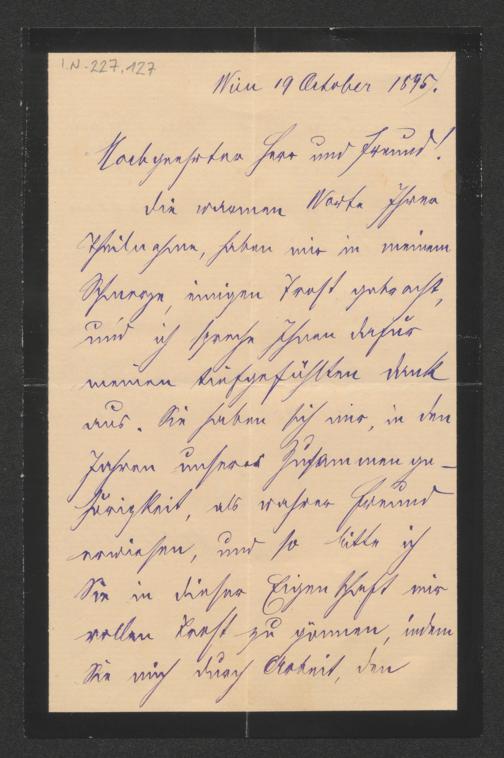 I.N.-227.127
Wien 19 October 1895.
Hochgeehrter Herr und Freund!
Die warmen Worte Ihrer
Theilnahme, haben mir in meinem
Schmerze, einigen Trost gebracht,
und ich spreche Ihnen dafür
meinen tiefgefühlten Dank
aus. Sie haben sich mir, in den
Jahren unserer Zusammenge-
hörigkeit, als wahrer Freund
erwiesen, und so bitte ich
Sie in dieser Eigenschaft mir
vollen Trost zu gönnen, indem
Sie mich durch Arbeit, den